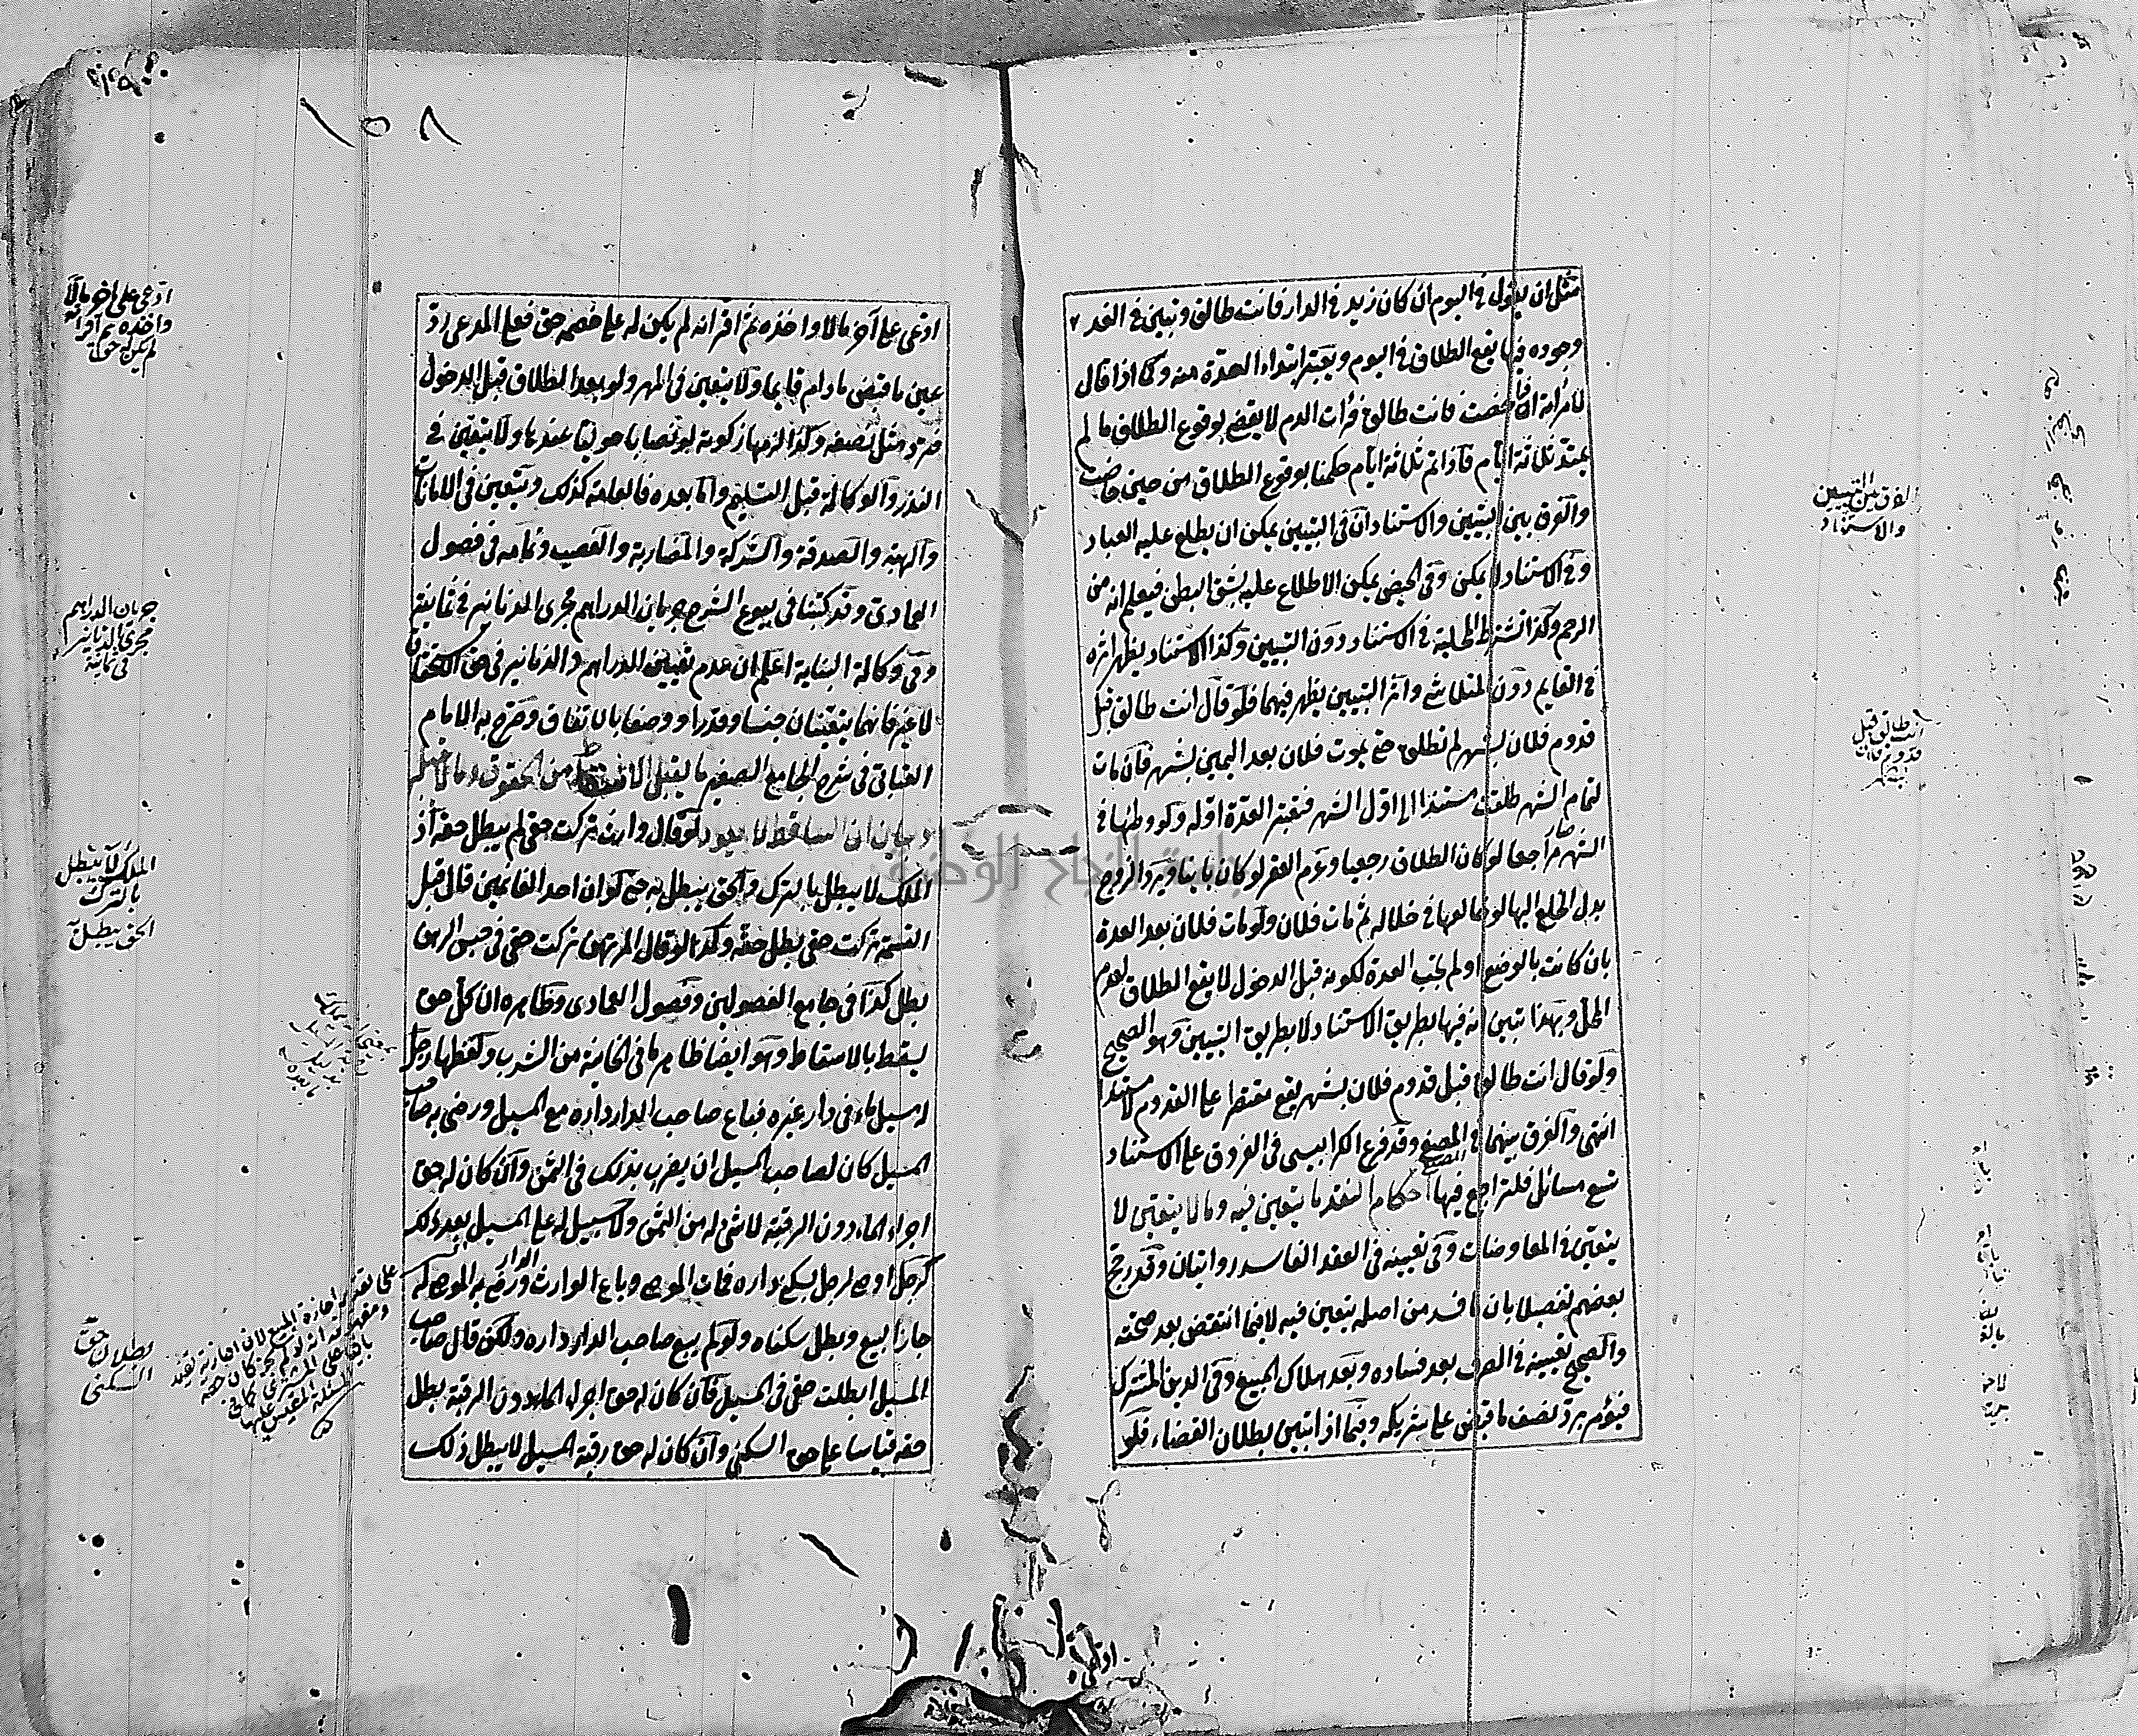 مثل ان يقول في اليوم ان كان زيد في الدار فانت طالق وتبين في الغد
وجوده فيها يقع الطلاق في اليوم ويعتبر ابتداء العدة منه وكما اذا قال
لامرأته اذا حضت فانت طالق فرأت الدم لا يقضى بوقوع الطلاق ما لم
يمتد ثلاثة ايام فاذا تم ثلاثة ايام حكمنا بوقوع الطلاق من حين حاضت
والفرق بين التبيين والاستناد ان في التبيين يمكن ان يطلع عليه العباد
وفي الاستناد لا يمكن وفي الحيض يمكن الاطلاع عليه بشق البطن فيعلم انه من
الرحم وكذا تشترط المحلية في الاستناد دون التبيين وكذا الاستناد يظهر اثره
في القايم دون المتلاشي واثر التبيين يظهر فيهما فلو قال انت طالق قبل
قدوم فلان بشهر لم تطلق حتى يموت فلان بعد اليمين بشهر فان مات
لتمام الشهر طلقت مستندا الى اول الشهر فتعتبر العدة اوله ولو وطئها في
الشهر صار مراجعا لو كان الطلاق رجعيا وغرم العقر لو كان باينا ويرد الزوج
بدل الخلع اليها لو خالعها في خلاله ثم مات فلان ولو مات فلان بعد العدة
بان كانت بالوضع او لم تجب العدة لكونه قبل الدخول لا يقع الطلاق لعدم
المحل وبهذا تبين انه فيها بطريق الاستناد لا بطريق التبيين وهو الصحيح
ولو قال انت طالق قبل قدوم فلان بشهر يقع مقتصرا على القدوم لا مستندا
انتهى والفرق بينهما في المصفى وقد فرع الكرابيسي في الفروق على الاستناد
تسع مسائل فلتراجع فيها احكام النقد ما يتعين فيه وما لا يتعين لا
يتعين في المعاوضات وفي تعيينه في العقد الفاسد روايتان وقد رجح
بعضهم تفصيلا بان ما فسد من اصله يتعين فيه لا فيما انتقض بعد صحته
والصحيح تعيينه في الصرف بعد فساده وبعد هلاك المبيع وفي الدين المشترك
فيؤمر برد نصف ما قبض على شريكه وفيما اذا تبين بطلان القضاء فلو
الفرق بين التبيين
والاستناد
انت طالق قبل
قدوم فلان
بشهر
١٥٨
ادعى على آخر مالا واخذه ثم اقر انه لم يكن له على خصمه حق فعلى المدعي رد
عين ما قبض ما دام قايما ولا يتعين في المهر ولو بعد الطلاق قبل الدخول
فترد مثل نصفه وكذا لزمها زكوته لو نصابا حوليا عندها ولا يتعين في
النذر والوكالة قبل التسليم واما بعده فالعامة كذلك ويتعين في الامانات
والهبة والصدقة والشركة والمضاربة والغصب وتمامه في فصول
العمادى وقد كتبنا في بيوع الشرح جريان الدراهم مجرى الدنانير في ثمانية
وفي وكالة البناية اعلم ان عدم تعيين الدراهم والدنانير في حق الاستحقاق
لا غير فانهما يتعينان جنسا وقدرا ووصفا بالاتفاق وصرح به الامام
العتابي في شرح الجامع الصغير ما يقبل الاسقاط من الحقوق وما لا يقبل
وبيان ان الساقط لا يعود لو قال وارث تركت حقي لم يبطل حقه اذ
الملك لا يبطل بالترك والحق يبطل به حتى لو ان احد الغانمين قال قبل
القسمة تركت حقي بطل حقه وكذا لو قال المرتهن تركت حقي في حبس الرهن
بطل كذا في جامع الفصولين وفصول العمادى وظاهره ان كل حق
يسقط بالاسقاط وهو ايضا ظاهر ما في الخانية من الشرب ولفظها رجل
له مسيل ماء في دار غيره فباع صاحب الدار داره مع المسيل ورضي به صاحب
المسيل كان لصاحب المسيل ان يضرب بذلك في الثمن وان كان له حق
اجراء الماء دون الرقبة لا شئ له من الثمن ولا سبيل له على المسيل بعد ذلك
كرجل اوصى لرجل بسكنى داره فمات الموصي وباع الوارث الدار ورضي به الموصى له
جاز البيع وبطل سكناه ولو لم يبع صاحب الدار داره ولكن قال صاحب
المسيل ابطلت حقي في المسيل فان كان له حق اجراء الماء دون الرقبة بطل
حقه قياسا على حق السكنى وان كان له حق رقبة المسيل لا يبطل ذلك
ادعى على آخر مالا
واخذه ثم اقر انه
لم يكن له حق
جريان الدراهم
مجرى الدنانير
في ثمانية
الملك لا يبطل
بالترك
الحق يبطل
بطلان حق
السكنى